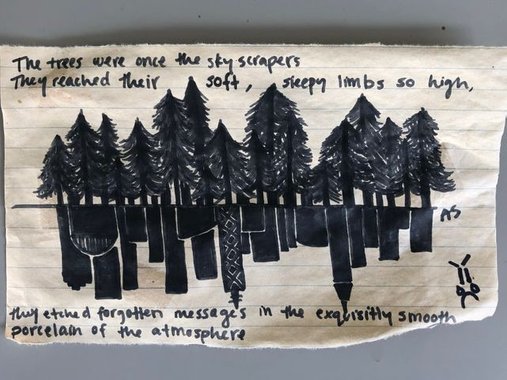 The trees were once the sky scrapers
They reached their soft, sleepy limbs so high,
AS
they etched forgotten messages in the exquisitly smooth
porcelain of the atmosphere